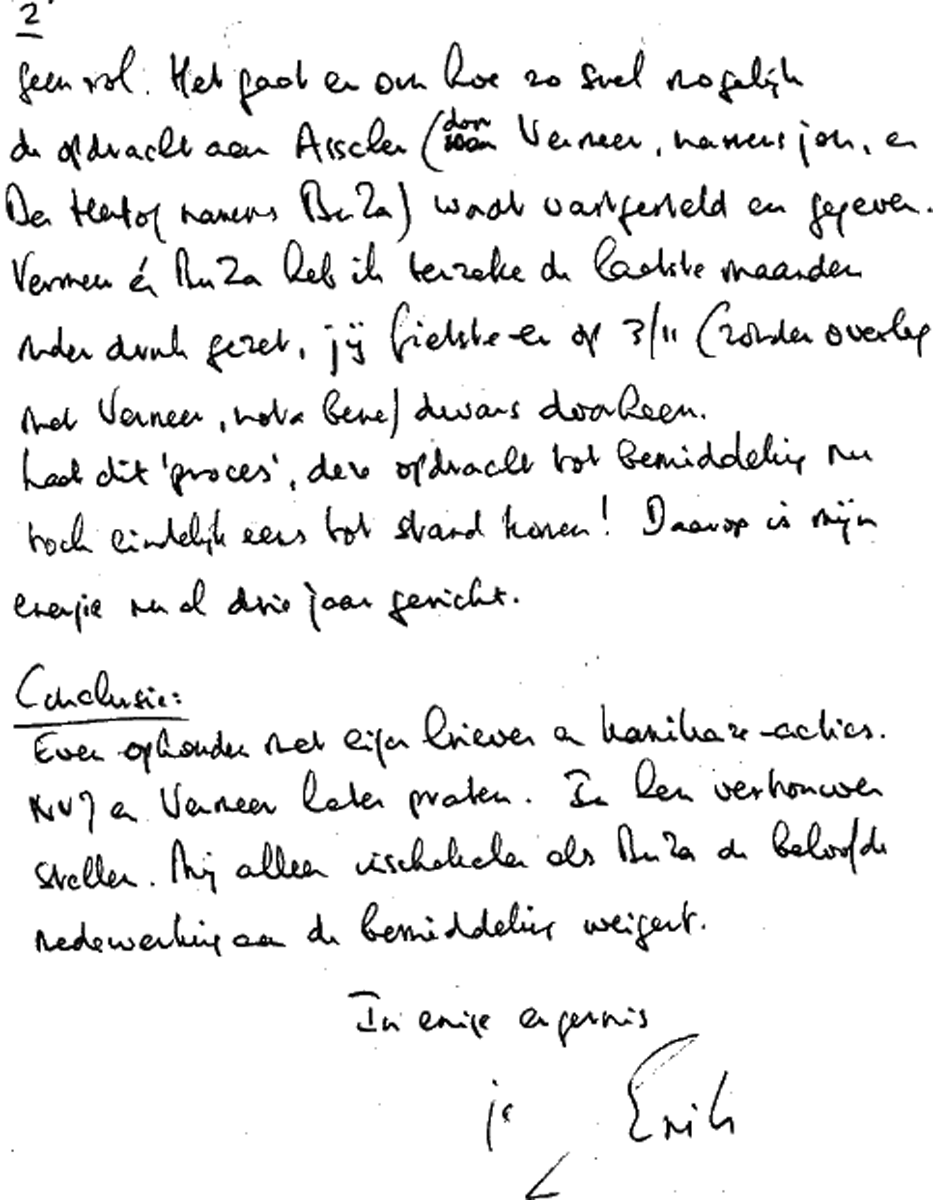 2
geen rol. Het gaat er om hoe zo snel mogelijk
de opdracht aan Asscher (door Vermeer, namens jou, en
Den Hertog namens BuZa) wordt vastgesteld en gegeven.
Vermeer én BuZa heb ik terzake de laatste maanden
onder druk gezet, jij fietste er op 3/11 (zonder overleg
met Vermeer, nota bene) dwars doorheen.
Laat dit 'proces', deze opdracht tot bemiddeling nu
toch eindelijk eens tot stand komen! Daarop is mijn
energie nu al drie jaar gericht.
Conclusie:
Even ophouden met eigen brieven en kamikaze-acties.
NVJ en Vermeer laten praten. In hen vertrouwen
stellen. Mij alleen inschakelen als BuZa de beloofde
medewerking aan de bemiddeling weigert.
In enige ergernis
je Erik